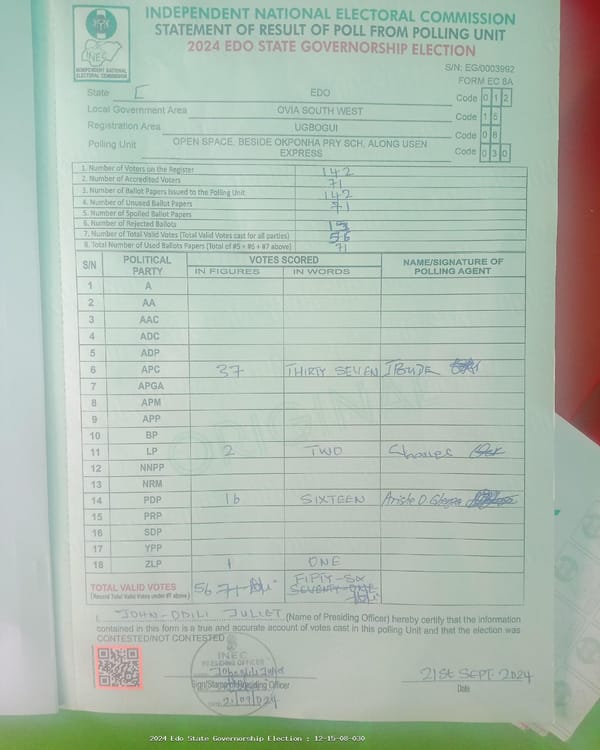 INDEPENDENT NATIONAL ELECTORAL COMMISSION
STATEMENT OF RESULT OF POLL FROM POLLING UNIT
2024 EDO STATE GOVERNORSHIP ELECTION
INEC
INDEPENDENT NATIONAL
ELECTORAL COMMISSION
S/N: EG/0003992
FORM EC 8A
State EDO Code 0 1 2
Local Government Area OVIA SOUTH WEST Code 1 5
Registration Area UGBOGUI Code 0 8
Polling Unit OPEN SPACE, BESIDE OKPONHA PRY SCH, ALONG USEN EXPRESS Code 0 3 0
1. Number of Voters on the Register 142
2. Number of Accredited Voters 71
3. Number of Ballot Papers Issued to the Polling Unit 142
4. Number of Unused Ballot Papers 71
5. Number of Spoiled Ballot Papers
6. Number of Rejected Ballots
7. Number of Total Valid Votes (Total Valid Votes cast for all parties) 56
8. Total Number of Used Ballots Papers (Total of #5 + #6 + #7 above) 71
S/N POLITICAL PARTY VOTES SCORED NAME/SIGNATURE OF POLLING AGENT
IN FIGURES IN WORDS
1 A
2 AA
3 AAC
4 ADC
5 ADP
6 APC 37 THIRTY SEVEN
7 APGA
8 APM
9 APP
10 BP
11 LP 2 TWO
12 NNPP
13 NRM
14 PDP 16 SIXTEEN
15 PRP
16 SDP
17 YPP
18 ZLP 1 ONE
TOTAL VALID VOTES 56 71 FIFTY-SIX
(Record Total Valid Votes under #7 above) SEVENTY-ONE
I, JOHN-ODILI JULIET (Name of Presiding Officer) hereby certify that the information
contained in this form is a true and accurate account of votes cast in this polling Unit and that the election was
CONTESTED/NOT CONTESTED
INEC
PRESIDING OFFICER
Sign/Stamp of Presiding Officer
21/09/2024
21st SEPT. 2024
Date
2024 Edo State Governorship Election : 12-15-08-030